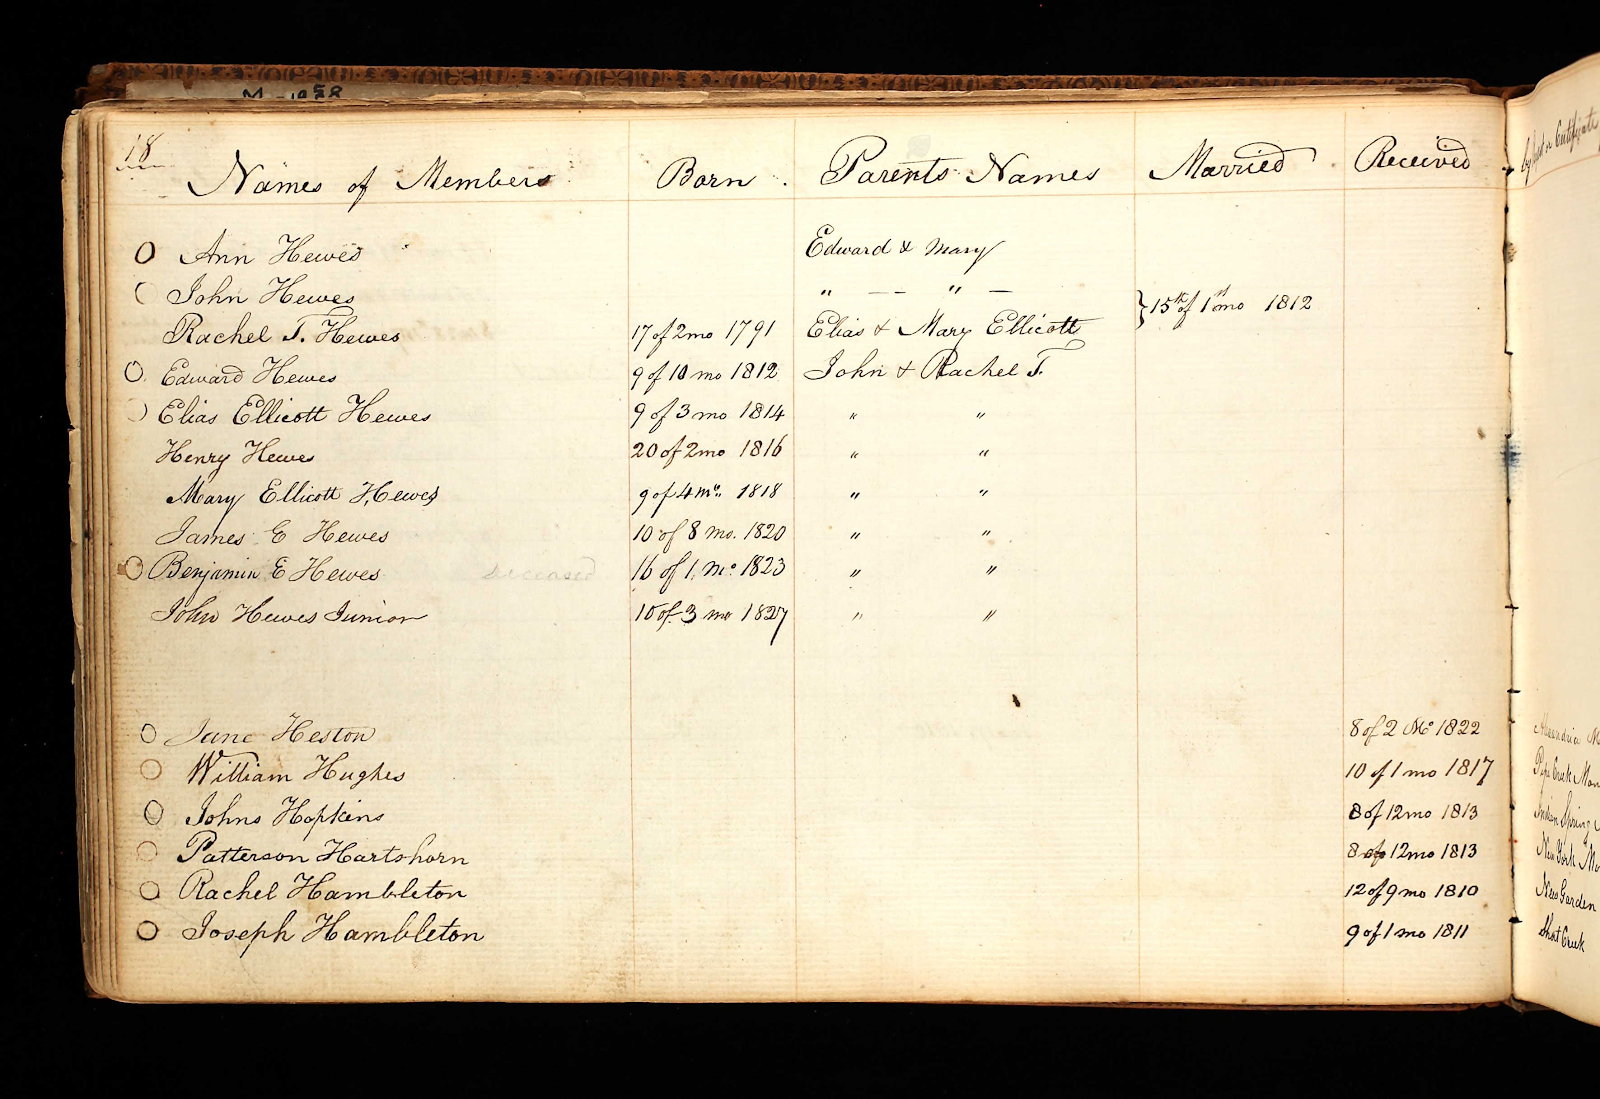 M 1958
18
Names of Members Born. Parents Names Married Received by first or Certificate
Ann Hewes Edward & Mary
John Hewes " — — " — } 15th of 1st mo 1812
Rachel T. Hewes 17 of 2 mo 1791 Elias & Mary Ellicott
Edward Hewes 9 of 10 mo 1812 John & Rachel T.
Elias Ellicott Hewes 9 of 3 mo 1814 " "
Henry Hewes 20 of 2 mo 1816 " "
Mary Ellicott Hewes 9 of 4 mo. 1818 " "
James E Hewes 10 of 8 mo. 1820 " "
Benjamin E Hewes deceased 16 of 1. Mo 1823 " "
John Hewes Junior 10 of 3 mo 1827 " "
Jane Heston 8 of 2 Mo 1822 Alexandria M
William Hughes 10 of 1 mo 1817 Pipe Creek Mon
Johns Hopkins 8 of 12 mo 1813 Indian Spring
Patterson Hartshorn 8 of 12 mo 1813 New York Mo
Rachel Hambleton 12 of 9 mo 1810 New Garden
Joseph Hambleton 9 of 1 mo 1811 Short Creek